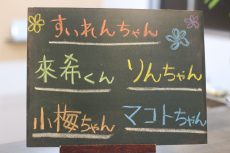 すいれんちゃん
來希くん りんちゃん
小梅ちゃん マコトちゃん